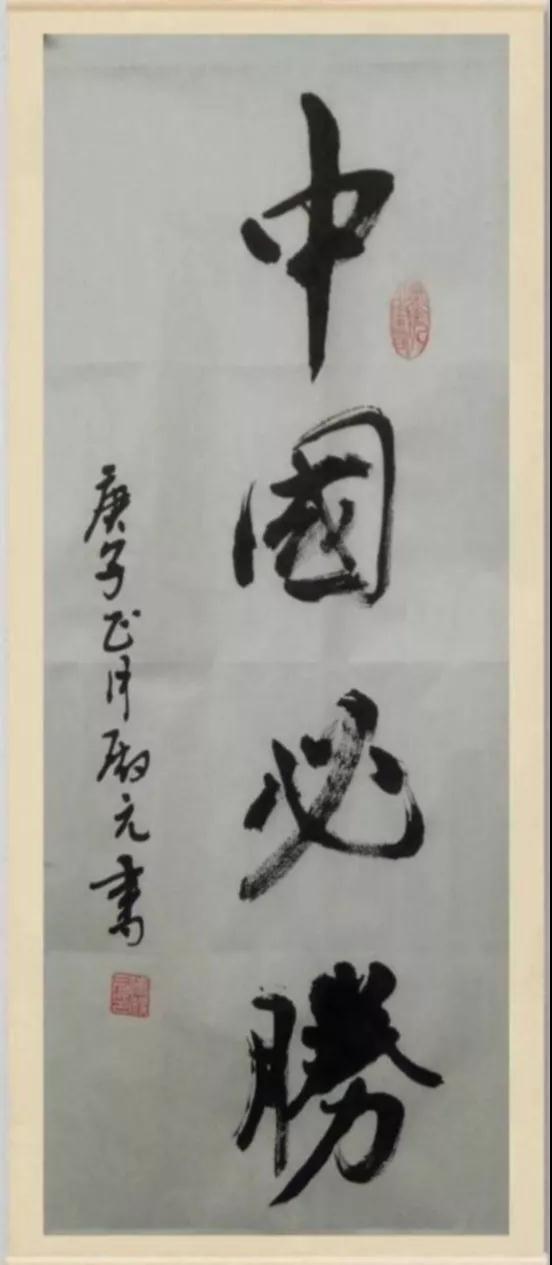 中國必勝
庚子正月殿元書